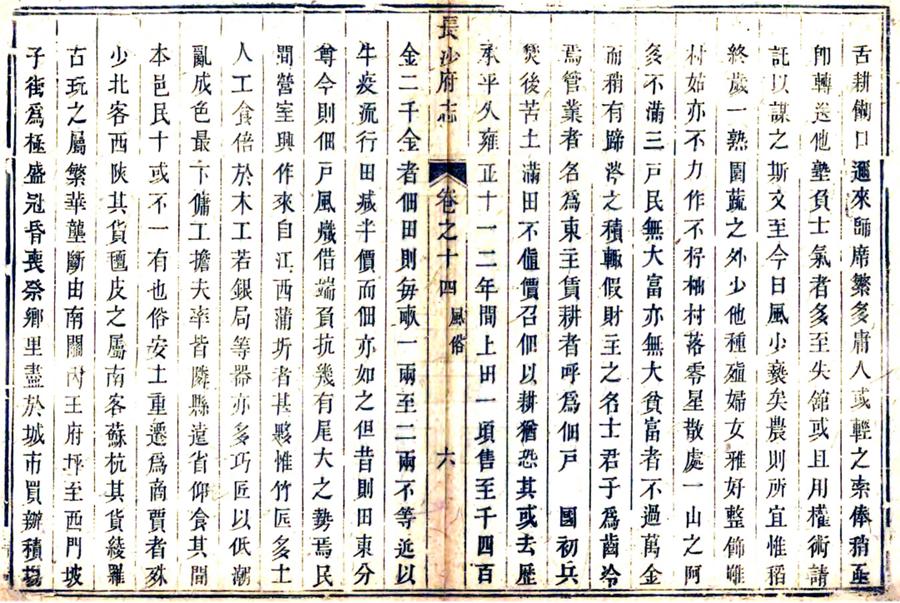 舌耕餬口邇來師席繁多庸人或輕之索俸稍至
卽轉送他塾負士氣者多至失舘或且用權術請
託以謀之斯文至今日風少衰矣農則所宜惟稻
終歲一熟園蔬之外少他種殖婦女雅好整飾雖
村姑亦不力作不杼柚村落零星散處一山之阿
多不滿三戸民無大富亦無大貧富者不過萬金
而稍有蹄涔之積輒假財主之名士君子爲齒冷
焉管業者名爲東主賃耕者呼爲佃戸 國初兵
燹後苦土滿田不値價召佃以耕猶恐其或去歷
承平久雍正十一二年間上田一頃售至千四百
長沙府志 卷之十四 風俗 六
金二千金者佃田則每畝一兩至二兩不等近以
牛疫流行田减半價而佃亦如之但昔則田東分
尊今則佃戸風熾借端負抗幾有尾大之勢焉民
間營室興作來自江西蒲圻者甚夥惟竹匠多土
人工食倍於木工若銀局等器亦多巧匠以低潮
亂成色最下傭工擔夫率皆隣縣遠省仰食其間
本邑民十或不一有也俗安土重遷爲商賈者殊
少北客西陝其貨氊皮之屬南客蘇杭其貨綾羅
古玩之屬繁華壟斷由南關內王府坪至西門坡
子街爲極盛冠昏喪祭鄉里盡於城市買辦積場